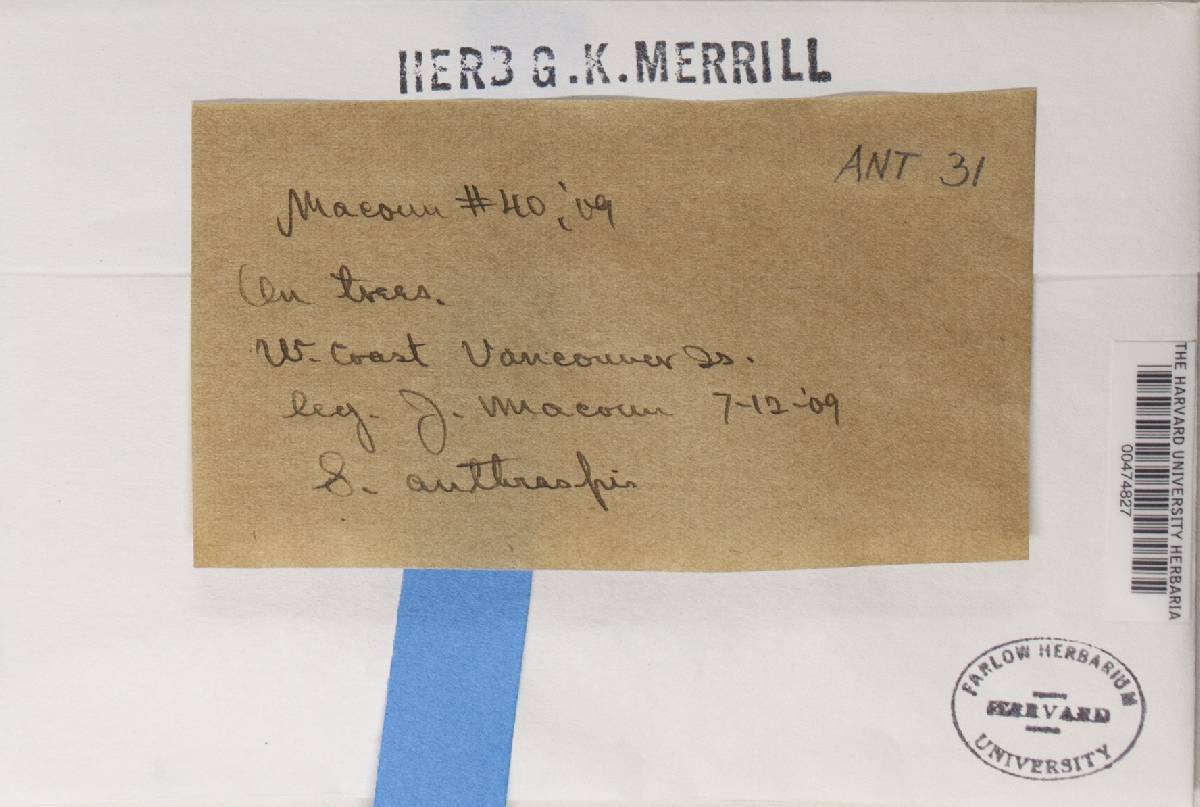 HERB G.K.MERRILL
ANT 31
Macoun #40, '09
On trees.
W. Coast Vancouver Is.
leg. J. Macoun 7-12-'09
S. anthraspis
THE HARVARD UNIVERSITY HERBARIA
00474827
FARLOW HERBARIUM
HARVARD
UNIVERSITY